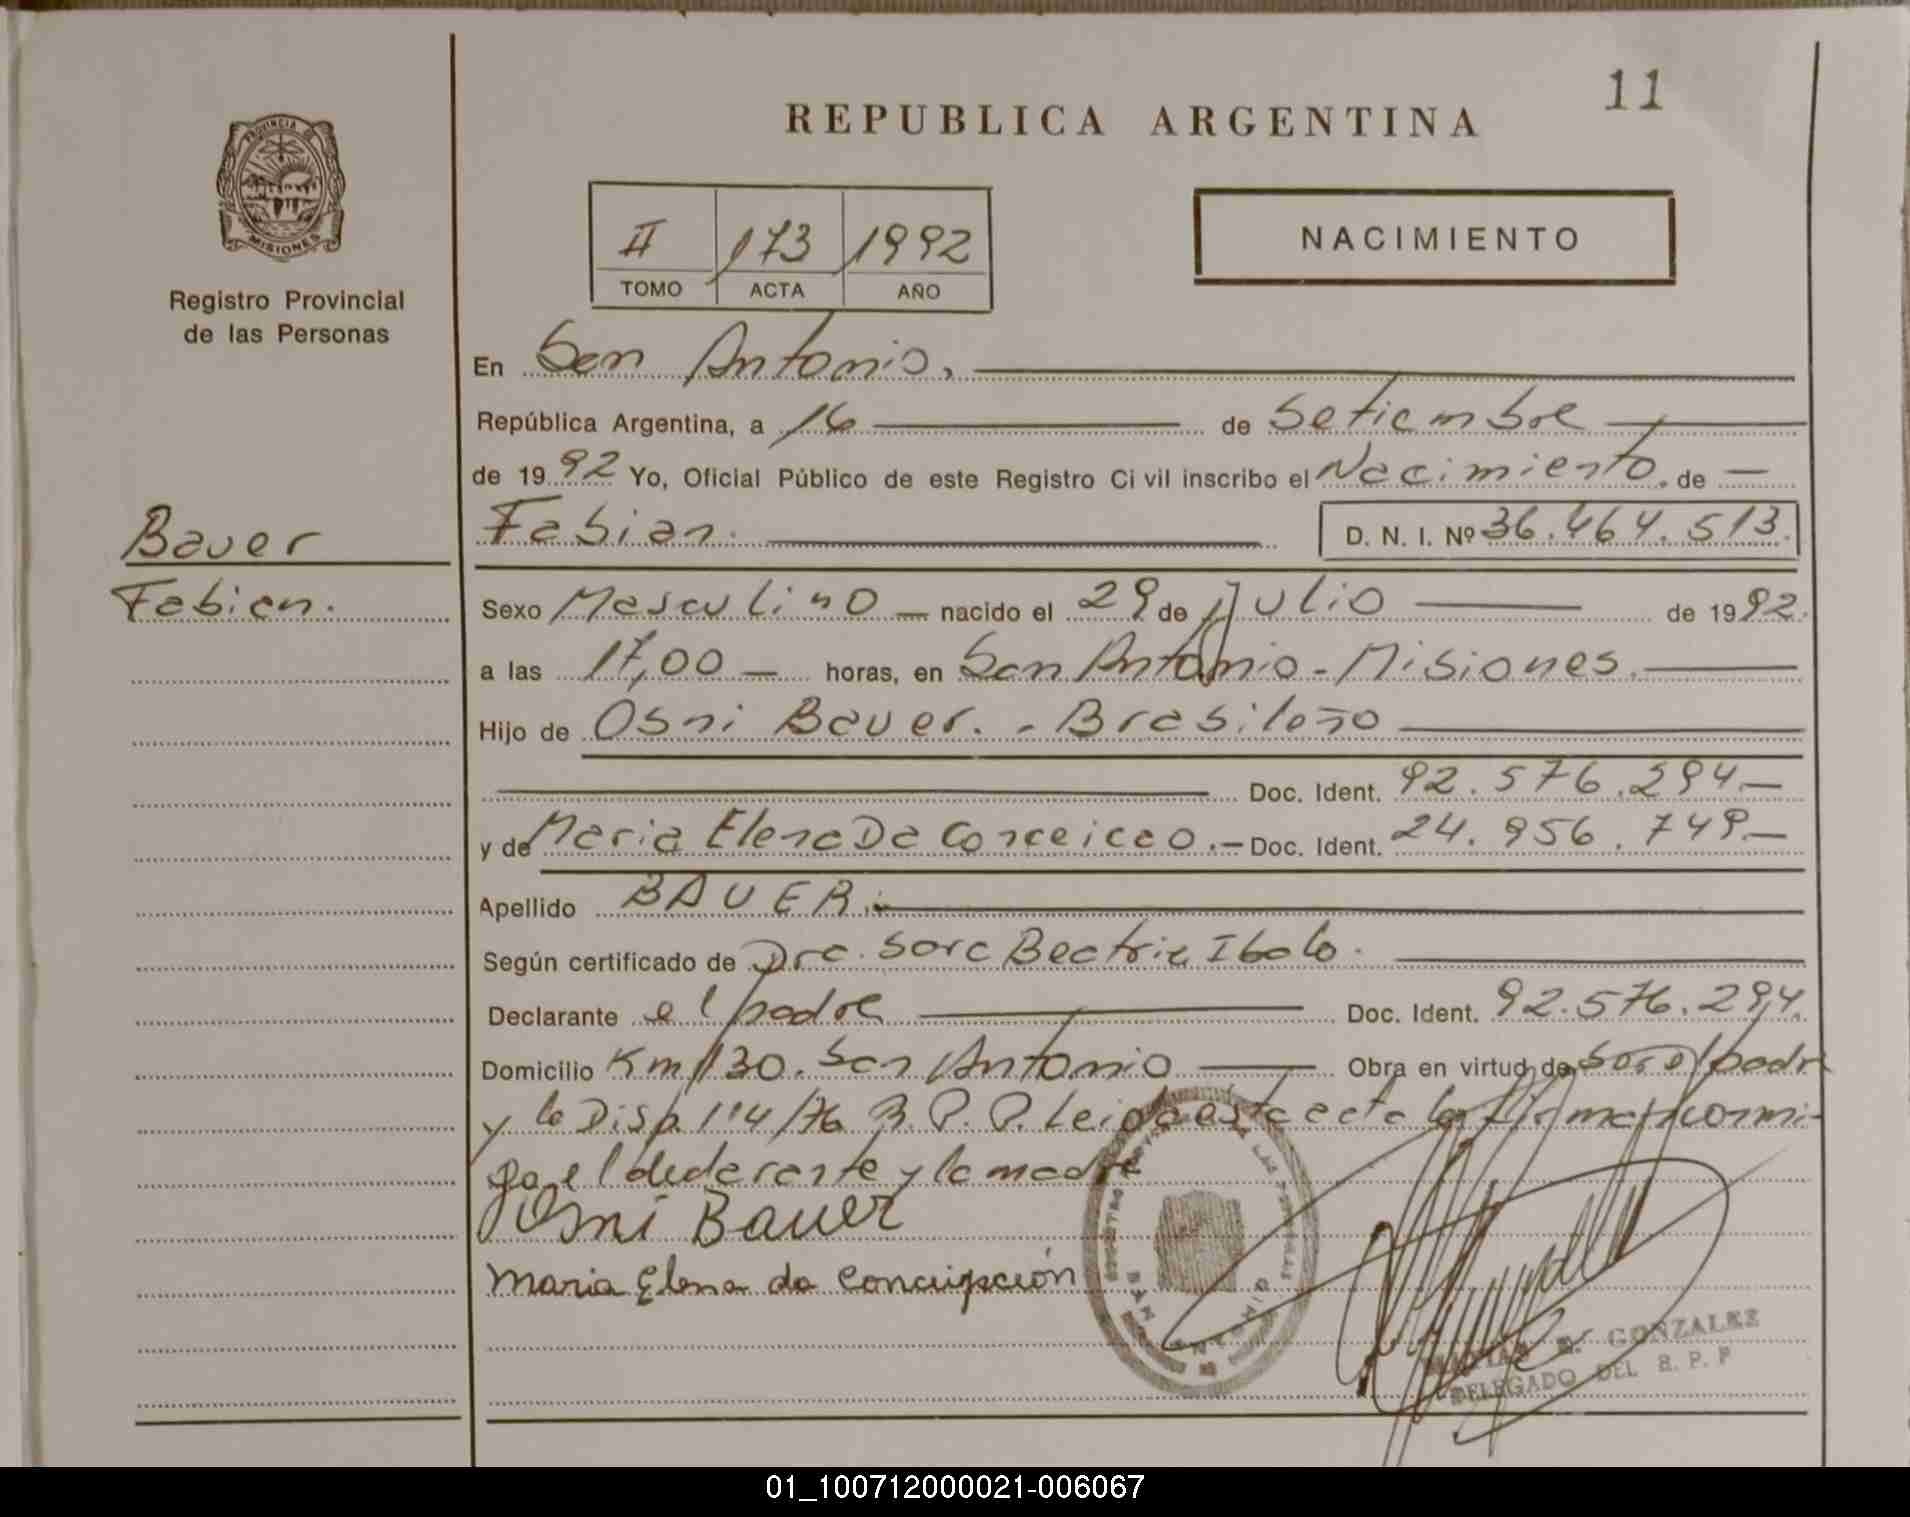 11
REPUBLICA ARGENTINA
PROVINCIA DE
MISIONES
Registro Provincial
de las Personas
II 173 1992
TOMO ACTA AÑO
NACIMIENTO
En San Antonio,
República Argentina, a 16 de Setiembre
de 1992 Yo, Oficial Público de este Registro Civil inscribo el Nacimiento. de
Bauer
Fabian.
Fabian. D. N. I. Nº 36.464.513.
Sexo Masculino nacido el 29 de Julio de 1992.
a las 17,00 horas, en San Antonio - Misiones.
Hijo de Osni Bauer. - Brasileño
Doc. Ident. 92.576.294.-
y de Maria Elena Da Conceicao.- Doc. Ident. 24.956.749.-
Apellido BAUER.-
Según certificado de Dra. Sara Beatriz Ibalo.
Declarante el padre Doc. Ident. 92.576.294.
Domicilio Km 130. San Antonio Obra en virtud de ser el padre
y la Disp. 114/76 R.P.P. Leida esta acta la firman conmi-
go el declarante y la madre
Osni Bauer
Maria Elena da Concuipsción
E. GONZALEZ
DELEGADO DEL R. P. P
01_100712000021-006067